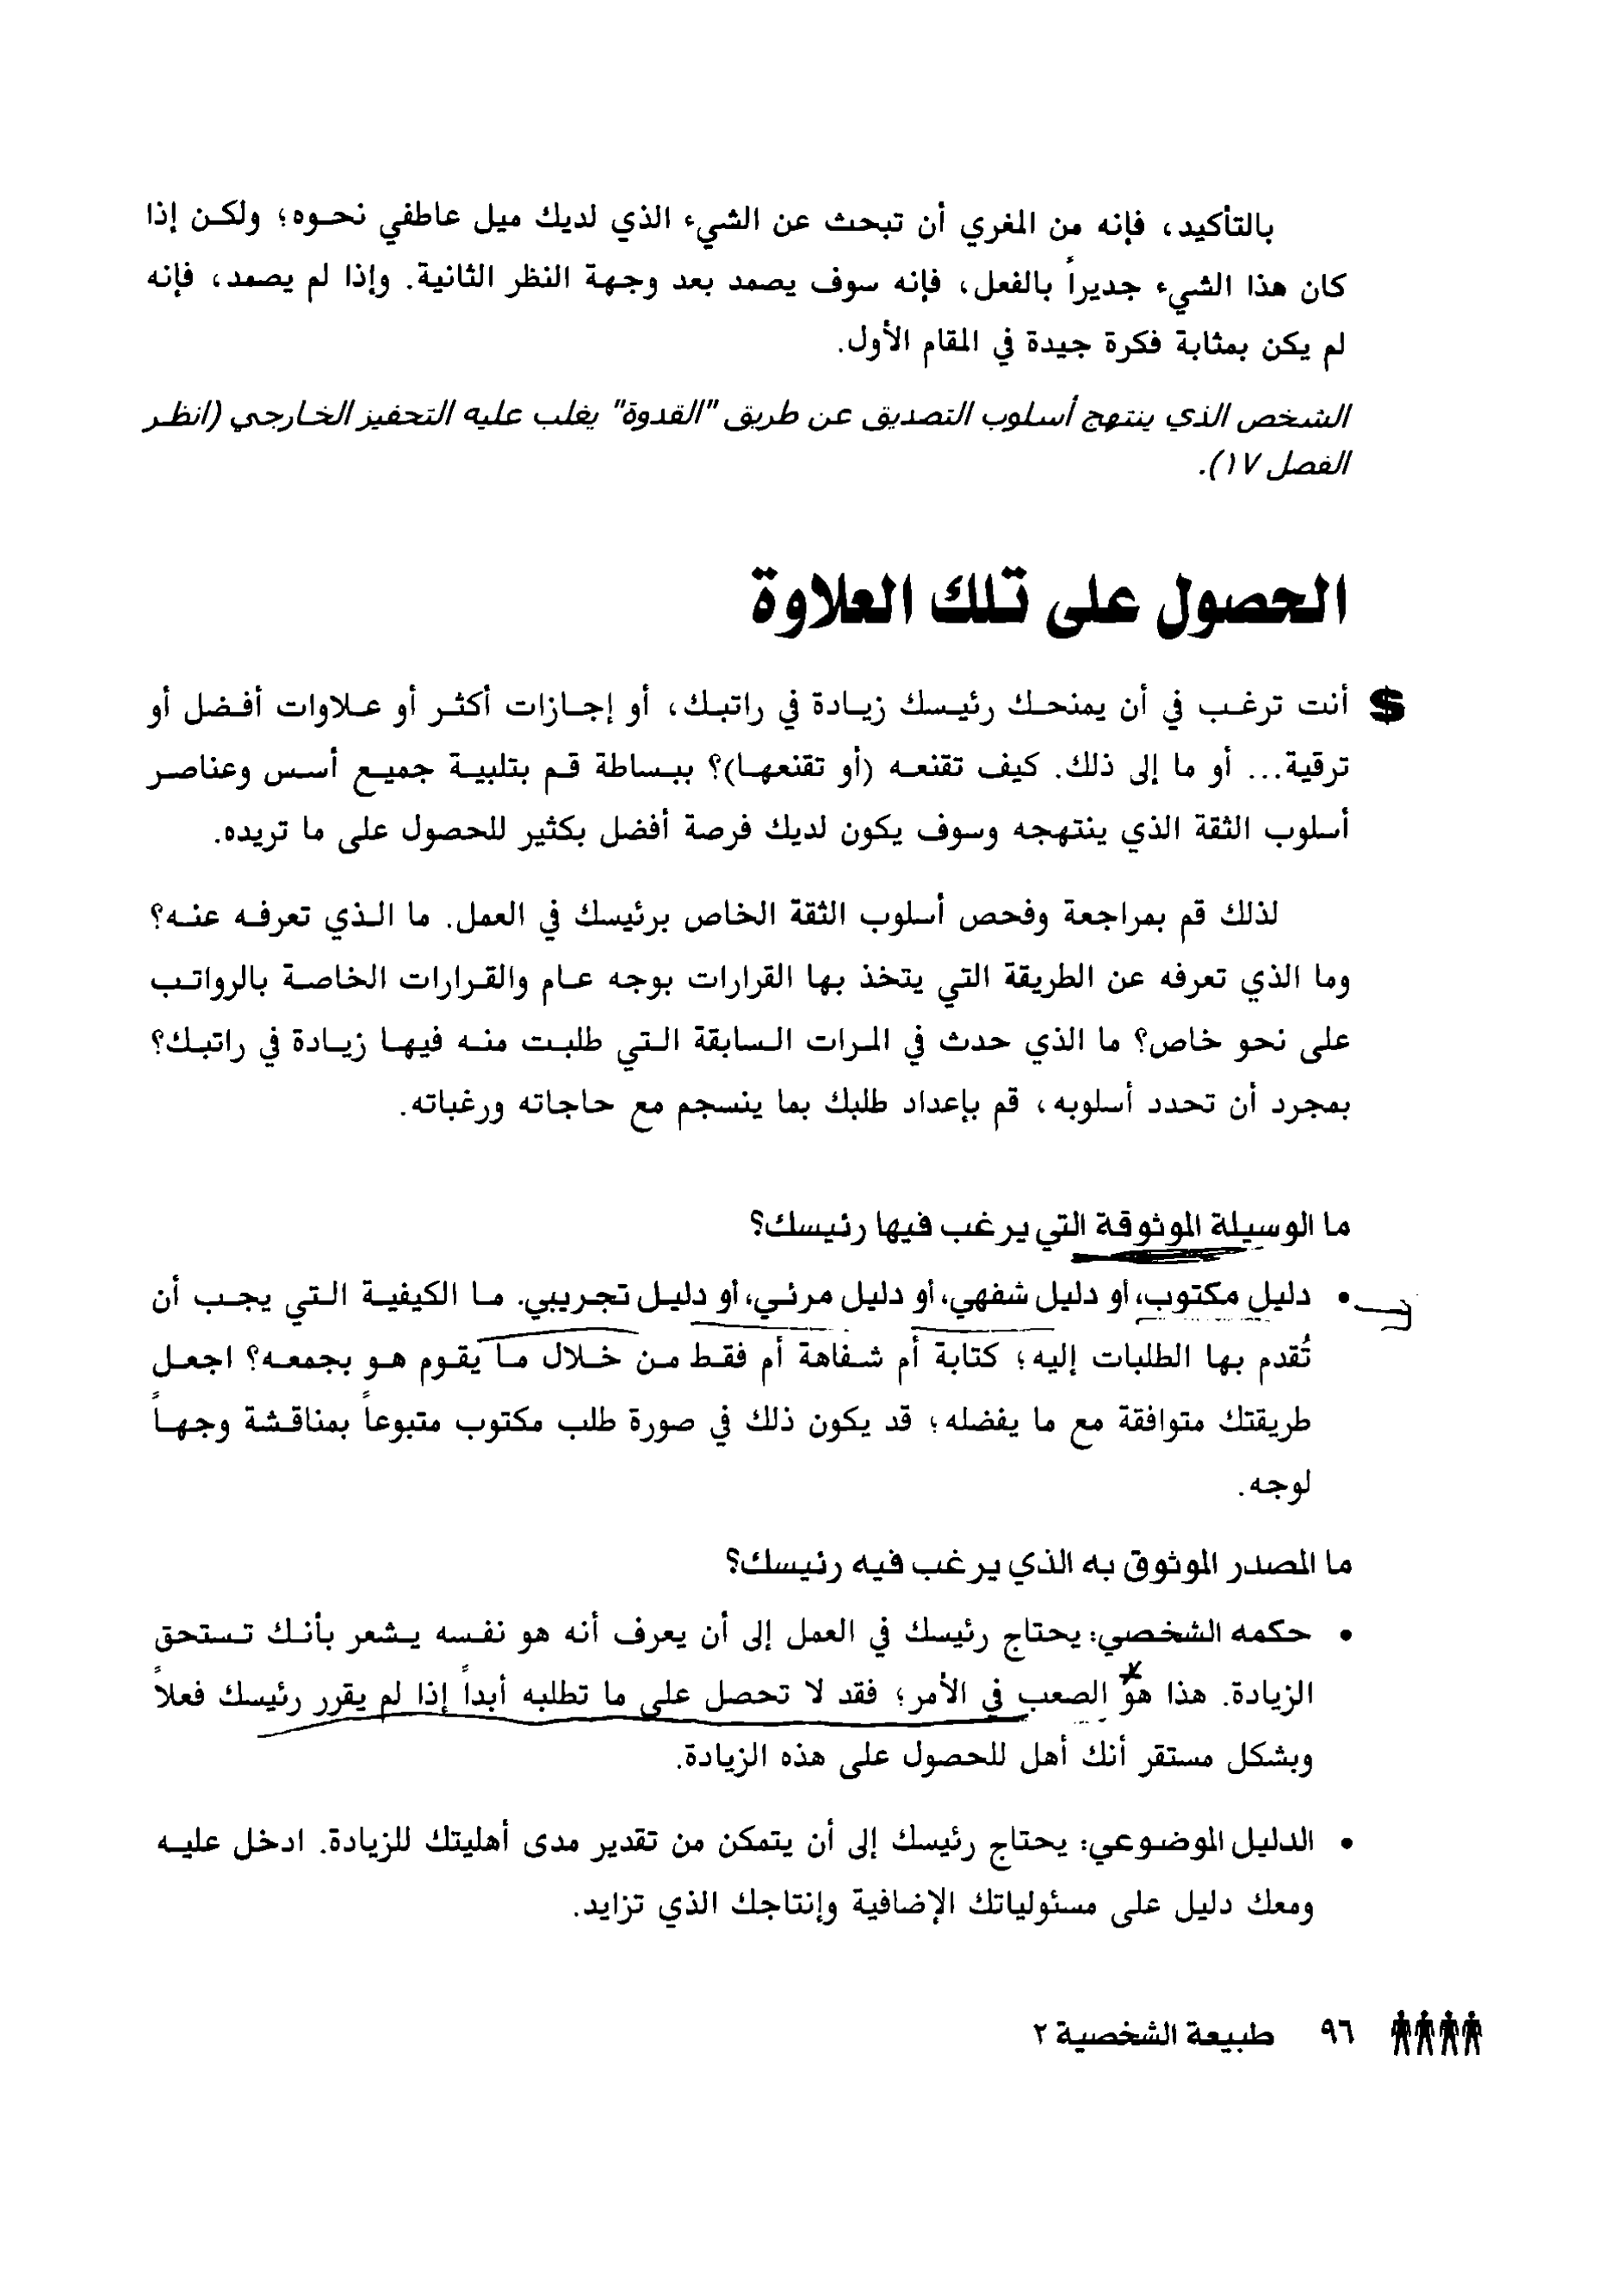 بالتأكيد، فإنه من المغري أن تبحث عن الشيء الذي لديك ميل عاطفي نحوه؛ ولكن إذا
كان هذا الشيء جديراً بالفعل، فإنه سوف يصمد بعد وجهة النظر الثانية. وإذا لم يصمد، فإنه
لم يكن بمثابة فكرة جيدة في المقام الأول.
الشخص الذي ينتهج أسلوب التصديق عن طريق "القدوة" يغلب عليه التحفيز الخارجي (انظر
الفصل ١٧).
الحصول على تلك العلاوة
$ أنت ترغب في أن يمنحك رئيسك زيادة في راتبك، أو إجازات أكثر أو علاوات أفضل أو
ترقية... أو ما إلى ذلك. كيف تقنعه (أو تقنعها)؟ ببساطة قم بتلبية جميع أسس وعناصر
أسلوب الثقة الذي ينتهجه وسوف يكون لديك فرصة أفضل بكثير للحصول على ما تريده.
لذلك قم بمراجعة وفحص أسلوب الثقة الخاص برئيسك في العمل. ما الذي تعرفه عنه؟
وما الذي تعرفه عن الطريقة التي يتخذ بها القرارات بوجه عام والقرارات الخاصة بالرواتب
على نحو خاص؟ ما الذي حدث في المرات السابقة التي طلبت منه فيها زيادة في راتبك؟
بمجرد أن تحدد أسلوبه، قم بإعداد طلبك بما ينسجم مع حاجاته ورغباته.
ما الوسيلة الموثوقة التي يرغب فيها رئيسك؟
• دليل مكتوب، أو دليل شفهي، أو دليل مرئي، أو دليل تجريبي. ما الكيفية التي يجب أن
تُقدم بها الطلبات إليه؛ كتابة أم شفاهة أم فقط من خلال ما يقوم هو بجمعه؟ اجعل
طريقتك متوافقة مع ما يفضله؛ قد يكون ذلك في صورة طلب مكتوب متبوعاً بمناقشة وجهاً
لوجه.
ما المصدر الموثوق به الذي يرغب فيه رئيسك؟
• حكمه الشخصي: يحتاج رئيسك في العمل إلى أن يعرف أنه هو نفسه يشعر بأنك تستحق
الزيادة. هذا هو الصعب في الأمر؛ فقد لا تحصل على ما تطلبه أبداً إذا لم يقرر رئيسك فعلاً
وبشكل مستقر أنك أهل للحصول على هذه الزيادة.
• الدليل الموضوعي: يحتاج رئيسك إلى أن يتمكن من تقدير مدى أهليتك للزيادة. ادخل عليه
ومعك دليل على مسئولياتك الإضافية وإنتاجك الذي تزايد.
٩٦ طبيعة الشخصية ٢